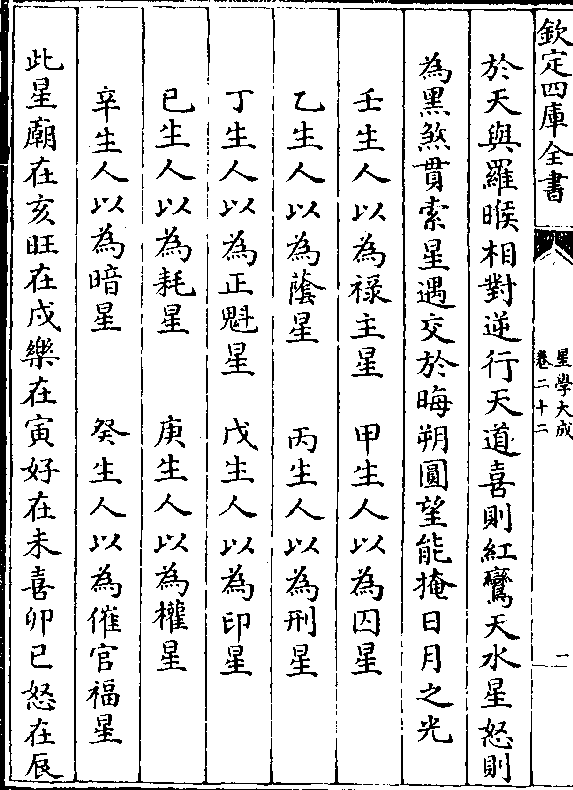 欽定四庫全書
星學大成
卷二十二
一
於天與羅㬋相對逆行天道喜則紅鸞天水星怒則
為黑煞貫索星遇交於晦朔圓望能掩日月之光
壬生人以為祿主星　甲生人以為囚星
乙生人以為蔭星　丙生人以為刑星
丁生人以為正魁星　戊生人以為印星
已生人以為耗星　庚生人以為權星
辛生人以為暗星　癸生人以為催官福星
此星廟在亥旺在戌樂在寅好在未喜卯已怒在辰